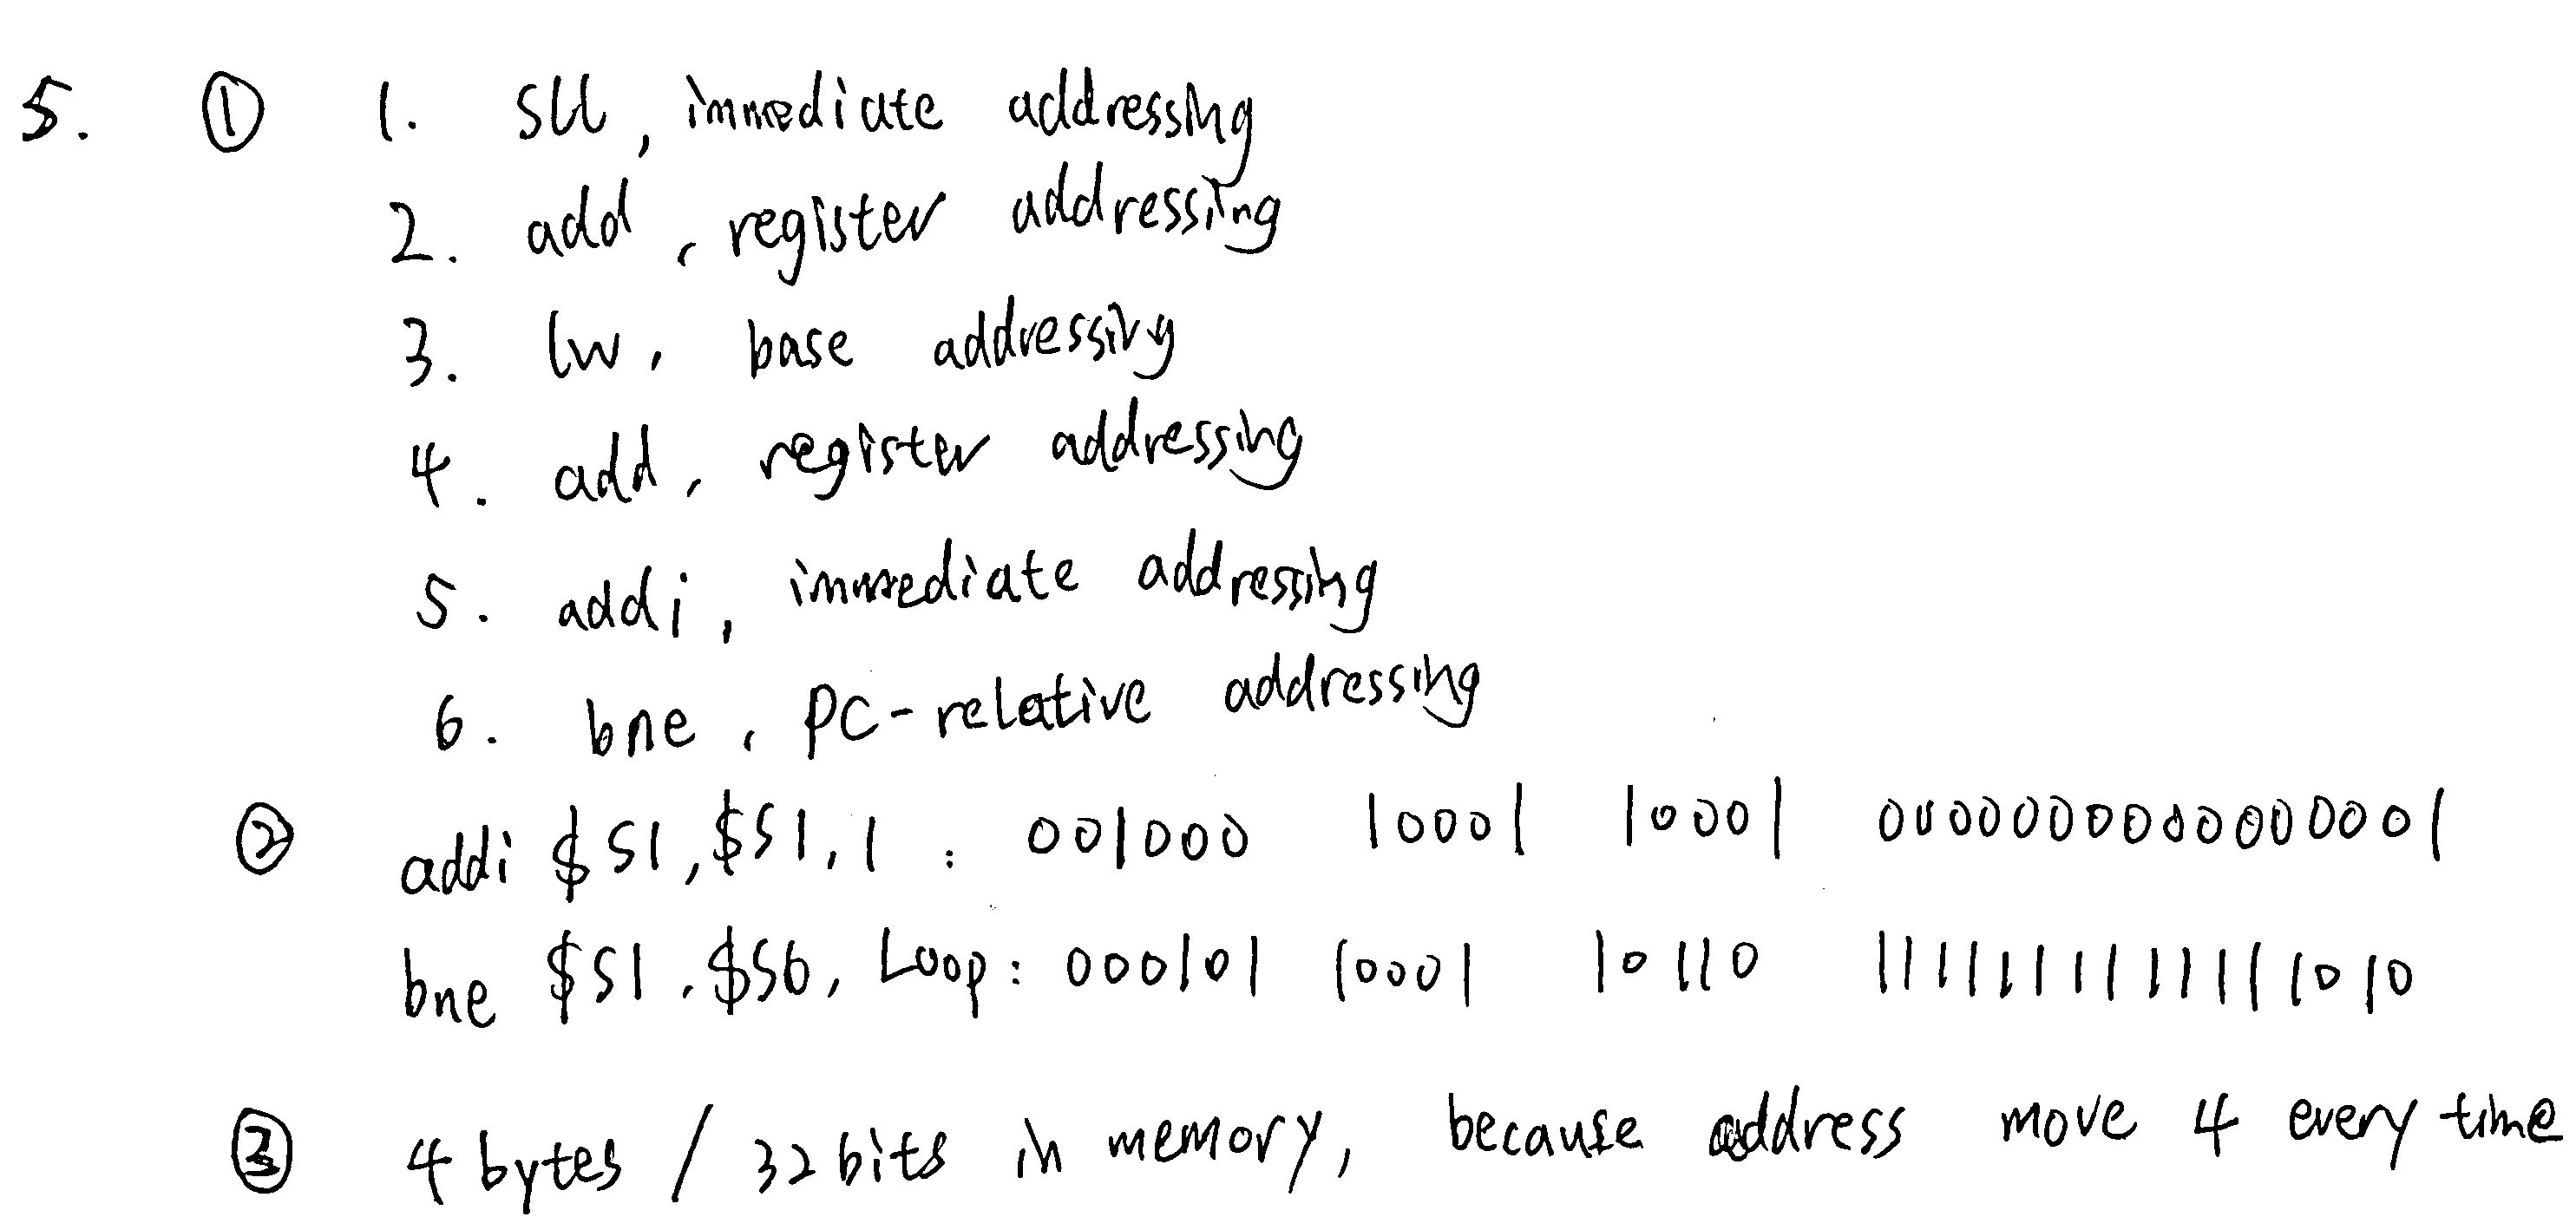 5. ① 1. sll, immediate addressing
2. add, register addressing
3. lw, base addressing
4. add, register addressing
5. addi, immediate addressing
6. bne, PC-relative addressing
② addi $S1,$S1,1 : 001000 10001 10001 0000000000000001
bne $S1,$S6, Loop: 000101 10001 10110 1111111111111010
③ 4 bytes / 32 bits in memory, because address move 4 every time